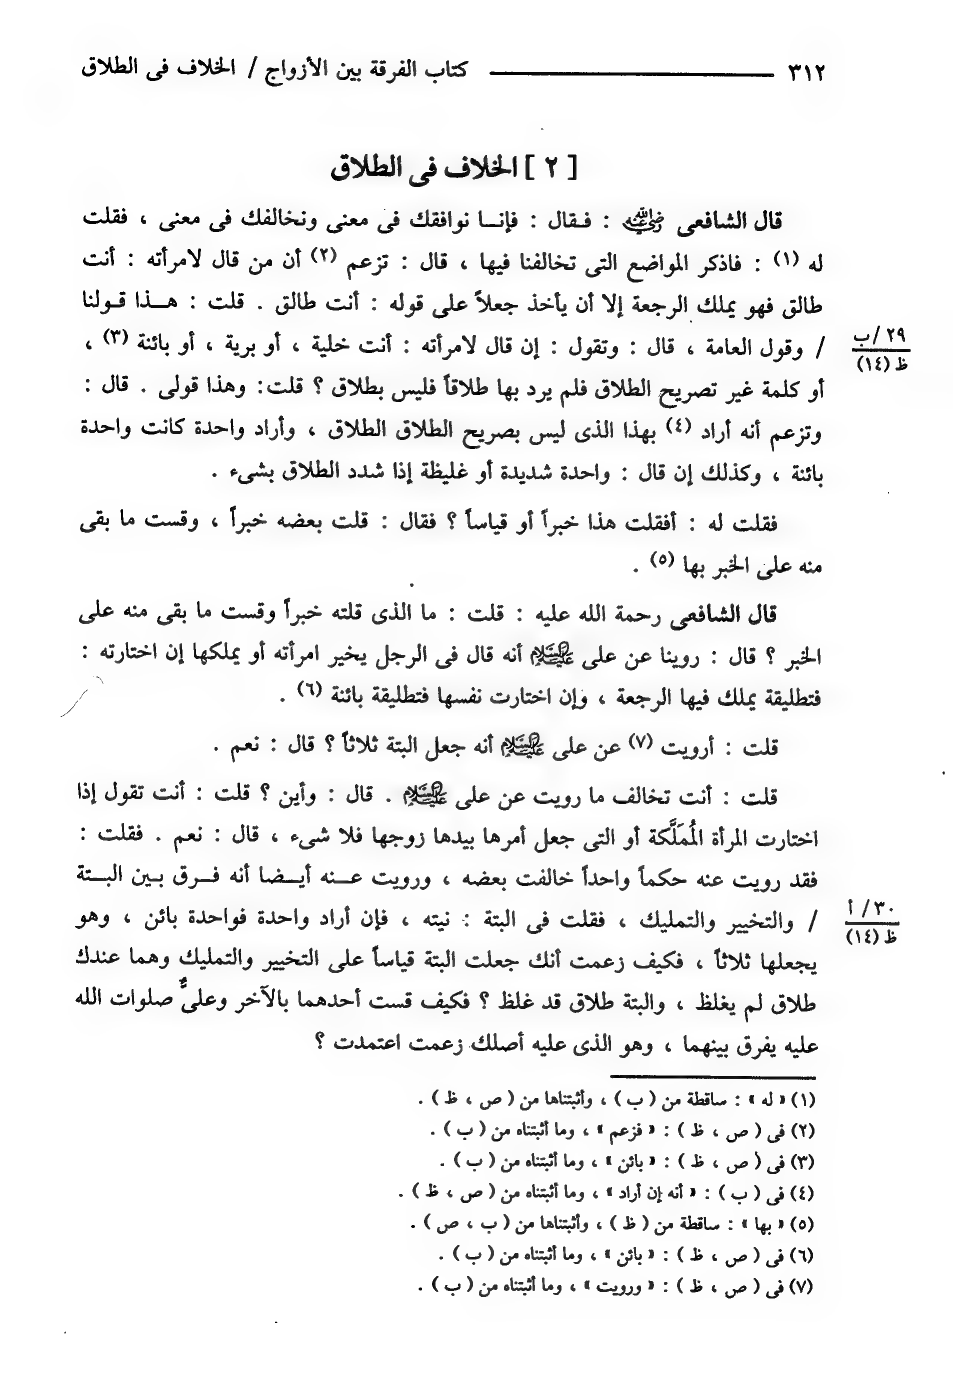 ٣١٢ كتاب الفرقة بين الأزواج / الخلاف فى الطلاق
[ ٢ ] الخلاف فى الطلاق
قال الشافعى رضي الله عنه : فـقال : فإنـــا نوافقك فى معنى ونخالفك فى معنى ، فقلت
له (١) : فاذكر المواضع التى تخالفنا فيها ، قال : تزعم (٢) أن من قال لامرأته : أنت
طالق فهو يملك الرجعة إلا أن يأخذ جعلاً على قوله : أنت طالق . قلت : هـــذا قـولنا
/ وقول العامة ، قال : وتقول : إن قال لامرأته : أنت خلية ، أو برية ، أو بائنة (٣) ،
٢٩/ب
ظ (١٤)
أو كلمة غير تصريح الطلاق فلم يرد بها طلاقاً فليس بطلاق ؟ قلت: وهذا قولى . قال :
وتزعم أنه أراد (٤) بهذا الذى ليس بصريح الطلاق الطلاق ، وأراد واحدة كانت واحدة
بائنة ، وكذلك إن قال : واحدة شديدة أو غليظة إذا شدد الطلاق بشىء .
فقلت له : أفقلت هذا خبراً أو قياساً ؟ فقال : قلت بعضه خبراً ، وقست ما بقى
منه على الخبر بها (٥) .
قال الشافعى رحمة الله عليه : قلت : ما الذى قلته خبراً وقست ما بقى منه على
الخبر ؟ قال : روينا عن على عليه السلام أنه قال فى الرجل يخير امرأته أو يملكها إن اختارته :
فتطليقة يملك فيها الرجعة ، وإن اختارت نفسها فتطليقة بائنة (٦) .
قلت : أرويت (٧) عن على عليه السلام أنه جعل البتة ثلاثاً ؟ قال : نعم .
قلت : أنت تخالف ما رويت عن على عليه السلام . قال : وأين ؟ قلت : أنت تقول إذا
اختارت المرأة المُمَلَّكة أو التى جعل أمرها بيدها زوجها فلا شىء ، قال : نعم . فقلت :
فقد رويت عنه حكماً واحداً خالفت بعضه ، ورويت عـــنه أيــضا أنه فــرق بـين البـــتة
/ والتخيير والتمليك ، فقلت فى البتة : نيته ، فإن أراد واحدة فواحدة بائن ، وهو
٣٠/ أ
ظ (١٤)
يجعلها ثلاثاً ، فكيف زعمت أنك جعلت البتة قياساً على التخيير والتمليك وهما عندك
طلاق لم يغلظ ، والبتة طلاق قد غلظ ؟ فكيف قست أحدهما بالآخر وعلىٌّ صلوات الله
عليه يفرق بينهما ، وهو الذى عليه أصلك زعمت اعتمدت ؟
(١) « له » : ساقطة من ( ب ) ، وأثبتناها من ( ص ، ظ ) .
(٢) فى ( ص ، ظ ) : « فزعم » ، وما أثبتناه من ( ب ) .
(٣) فى ( ص ، ظ ) : « بائن » ، وما أثبتناه من ( ب ) .
(٤) فى ( ب ) : « أنه إن أراد » ، وما أثبتناه من ( ص ، ظ ) .
(٥) « بها » : ساقطة من ( ظ ) ، وأثبتناها من ( ب ، ص ) .
(٦) فى ( ص ، ظ ) : « بائن » ، وما أثبتناه من ( ب ) .
(٧) فى ( ص ، ظ ) : « ورويت » ، وما أثبتناه من ( ب ) .